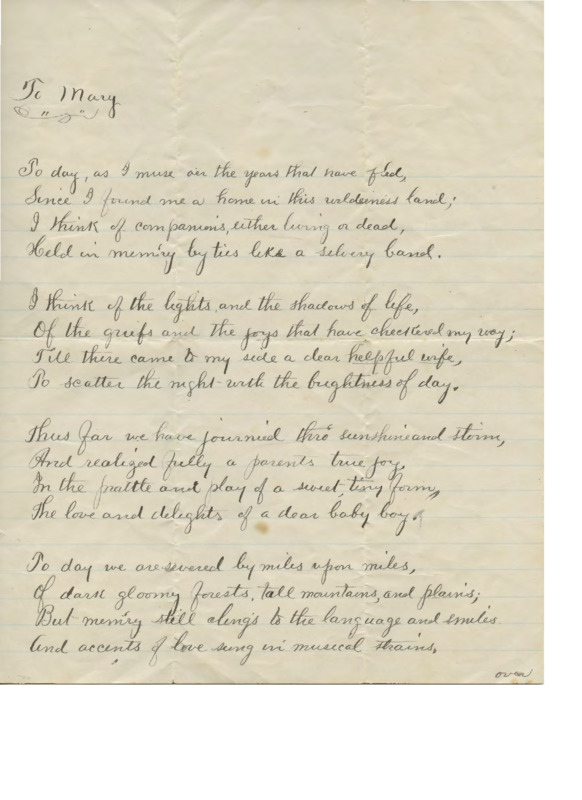 To Mary
To day, as I muse on the years that have fled,
Since I found me a home in this wilderness land;
I think of companions, either living or dead,
Held in mem'ry by ties like a silvery band.
I think of the lights and the shadows of life,
Of the griefs and the joys that have checkered my way;
Till there came to my side a dear helpful wife,
To scatter the night with the brightness of day.
Thus far we have journied thro' sunshine and storm,
And realized fully a parents true joy,
In the prattle and play of a sweet, tiny form,
The love and delights of a dear baby boy.
To day we are severed by miles upon miles,
Of dark gloomy forests, tall mountains, and plains;
But mem'ry still clings to the language and smiles
And accents of love sung in musical strains,
over